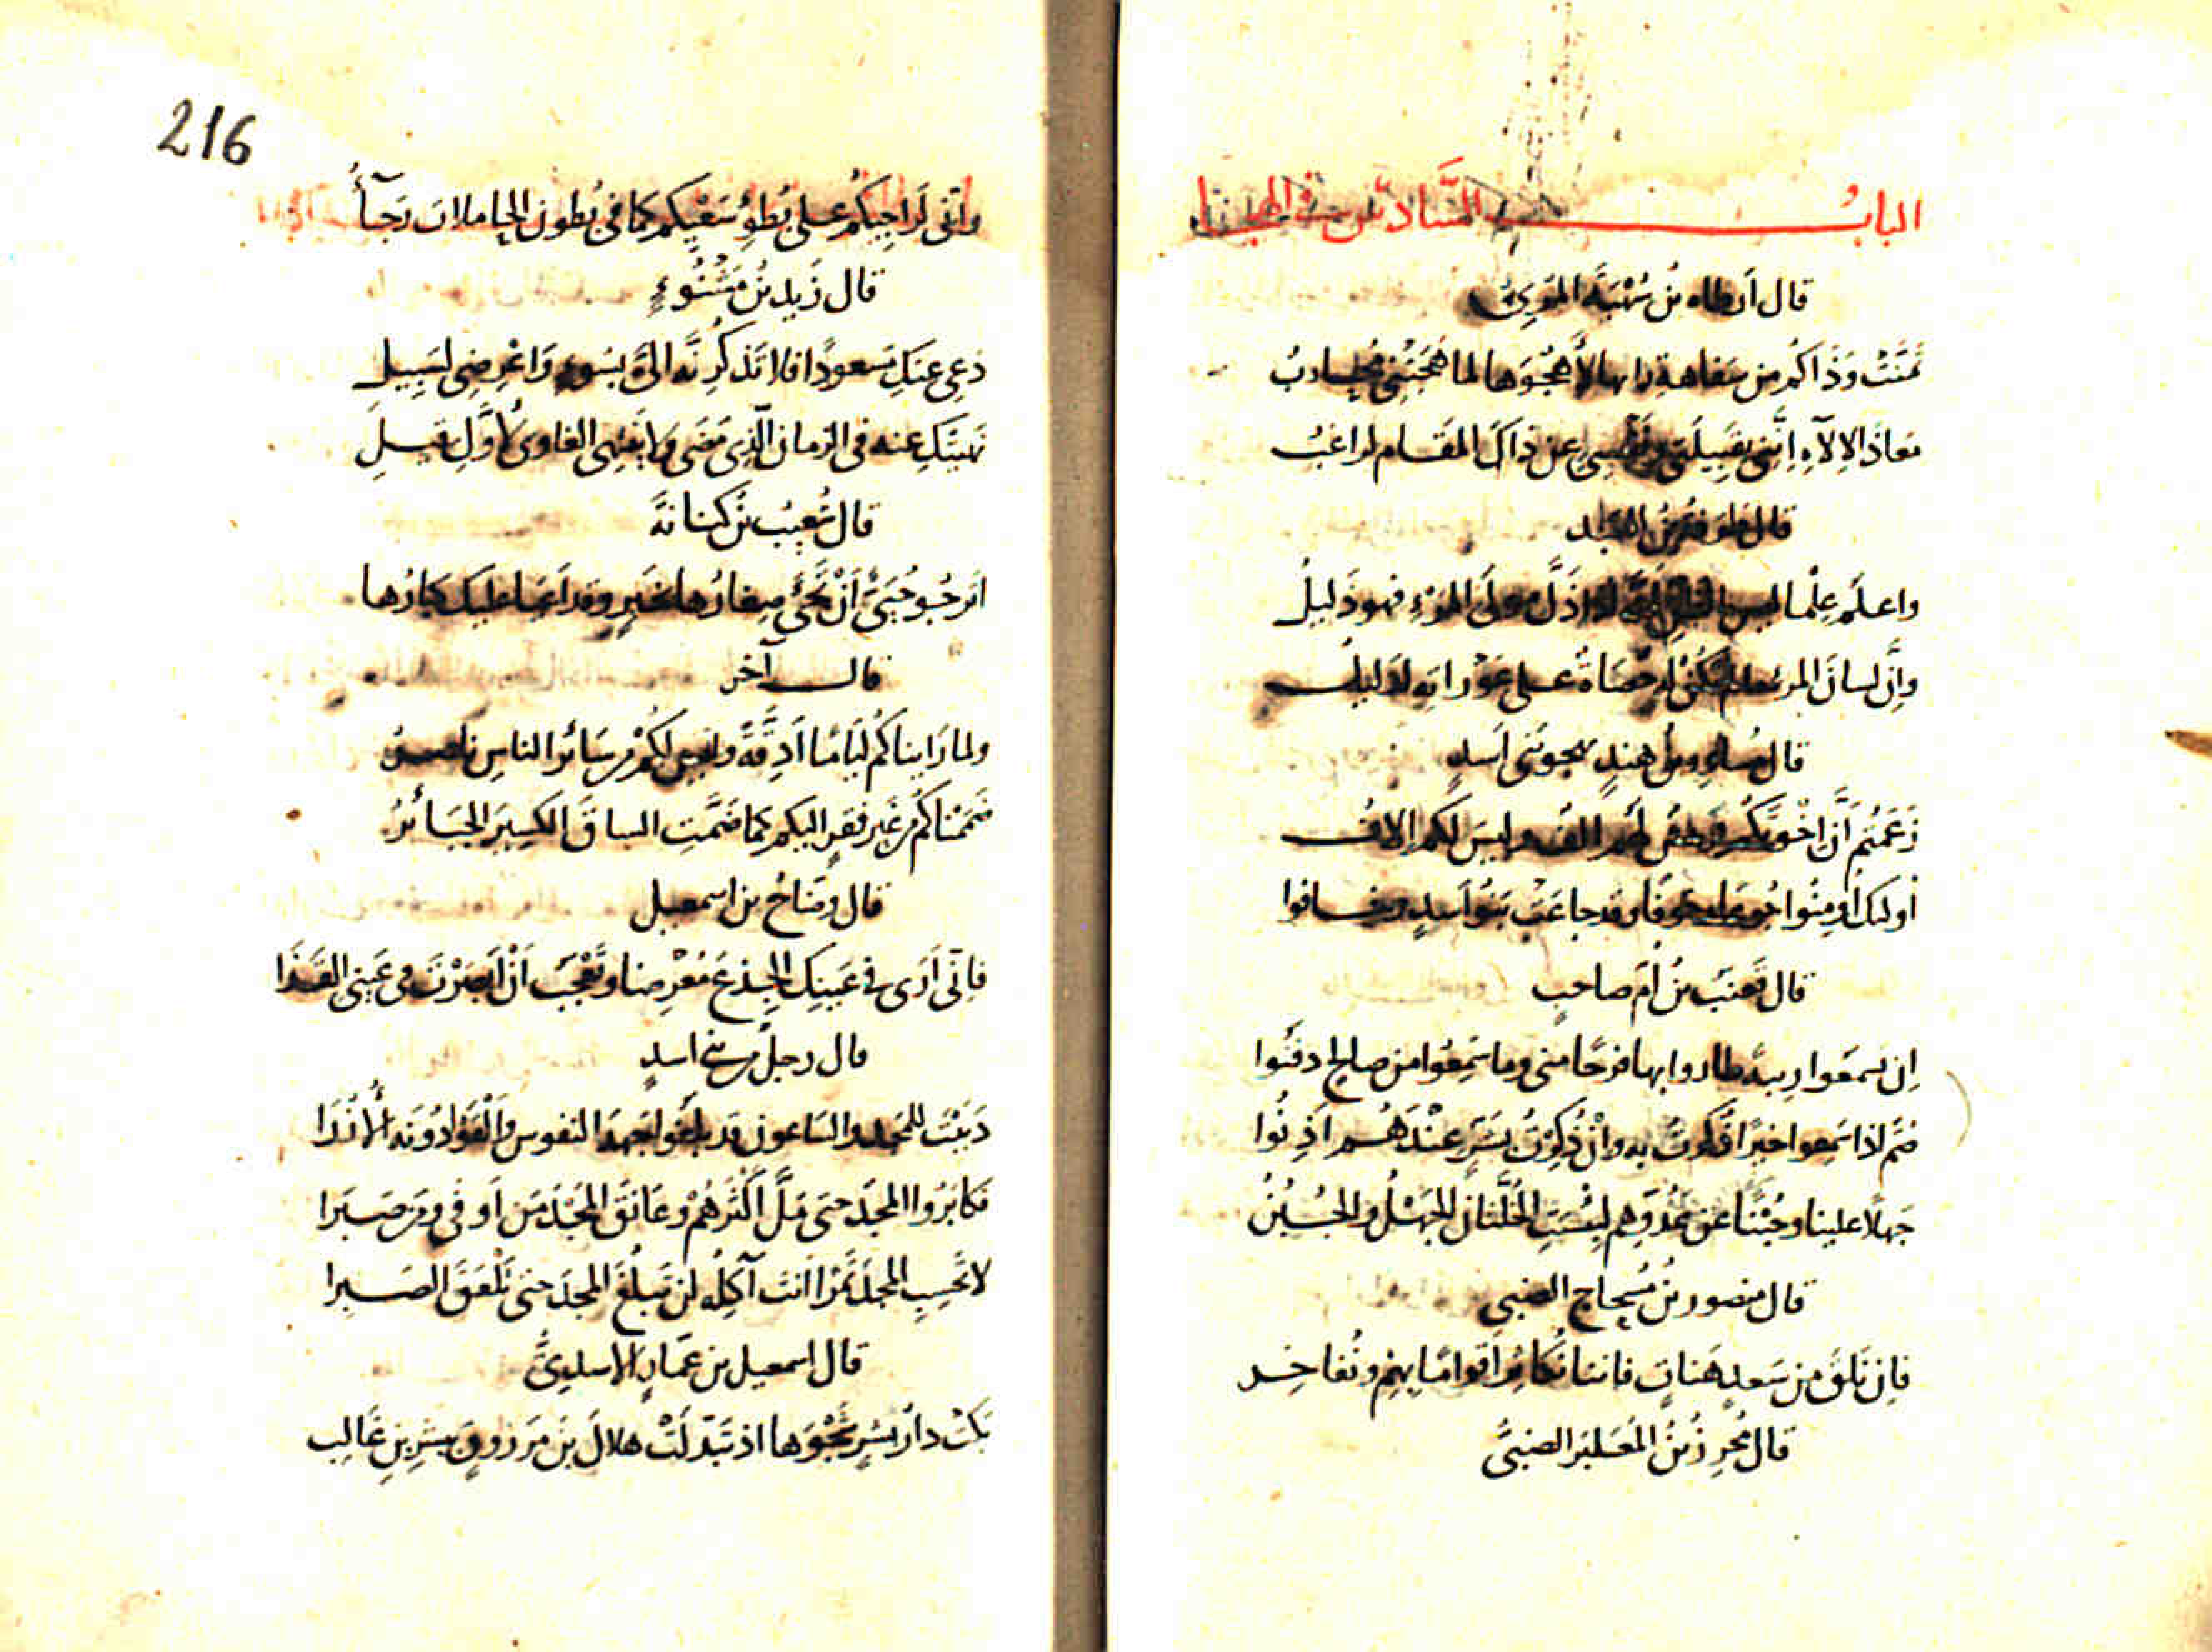 الباب السادس في الهجاء
قال أرطاه بن سُهَيَّة المُرّي
تَمَنَّتْ وَذَاكُم من سَفاهة رايها لأَهْجُوَها لما هَجَتْنِي مُحارِبُ
مَعَاذَ الالآهِ اِنَّنِي بقَبِيلَتي ونَفْسِي عن ذَاكَ المَقام لراغبُ
قال طرفة بن العبد
واعلَم عِلْما ليس بالظن انه اذا ذَلَّ مولَى المرْءِ فهو ذَلِيلُ
وإنّ لسانَ المرء ما لم تكن له حَصَاةٌ على عَوْراته لدَليل
قال مُساور بن هندٍ يهجو بني اَسدٍ
زَعَمْتُم أنّ اِخْوَتَكُم قريش لهم الف وليسَ لكم إلاف
أولئك أومِنُوا جُوعا وخوفًا وقد جاعَتْ بَنُو اَسدٍ وخافوا
قال قَعنَبُ بنُ أمّ صاحبٍ
اِن يسمَعوا رِيبةً طاروا بها فرحًا مني وما سَمِعُوا من صالح دفَنُوا
صُمٌّ اذا سَمِعوا خيرًا ذُكِرتُ به واِنْ ذُكِرْتُ بسَرٍّ عِنْدَهُم اَذِنُوا
جَهلًا علينا وجُبْنًا عن عَدُوِّهِم لبِئْسَتِ الخَلَّتانِ الجَهْلُ والجُبُنُ
قال منصور بنُ مُسِجاح الضبي
فاِن تَلقَ من سَعدٍ هَناتٍ فاننا نُكاثِرُ اَقوامًا بِهِم ونُفاخِر
قال مُحرِزُ بنُ المُعَكبَر الضبيّ
216
وإنّي لَراجِيكُم على بُطوِء سَعْيِكُم كما في بُطون الحاملات رَجَآءُ
قال زَيد بنُ مَشْنُوءٍ
دَعِي عنكِ مسعودًا فلا تَذكُرِنَّه اليَّ بسُوءٍ وَاعْرِضِي لسَبِيلِ
نَهيتُكِ عنه في الزمان الّذِي مَضَى ولا يَنتهِي الغاوي لأوَّلِ قيلِ
قال شُعيبُ بنُ كنانةَ
اَترجُو حُيَيٌّ اَنْ تَجيَّ صِغارُها بخَيرٍ وقد اَعيا عليك كبارُها
قال آخر
ولما رَايناكُم لِيَامًا اَدِقَّةً وليس لكُم من سَائرِ الناسِ ناصرُ
ضَمَمْناكُم من غير فَقرٍ اليكم كما ضَمَّتِ الساقَ الكسيرَ الجَبَائرُ
قال وضّاحُ بن اسمعيل
فاِنّي اَرَى في عَينِك الجِذعَ مُعْرِضا وتَعْجَبَ اَنْ اَبصَرْتَ في عَيني القَذَا
قال رجلٌ من بني اسدٍ
دَبَبْتَ للمَجد والسَاعون قد بلَغوا جَهدَ النفوس وَاَلْقَوا دُونَه الأُزُرَا
فكابَرُوا المجدَ حتى مَلَّ اَكْثَرُهُمْ وعَانَقَ المَجْدَ مَن اَوفَى ومَن صَبَرا
لا تَحسِبِ المجدَ تَمْرًا اَنتَ آكِلُه لن تبلُغَ المجدَ حتى تَلْعَقَ الصَبِرا
قال اسمعيل بن عَمّارٍ الاسدِيُّ
بَكَتْ دارُ بِشرٍ شَجْوَها اذ تَبَدَّلَتْ هلالَ بن مَرزوقٍ ببِشرِ بنِ غَالِب